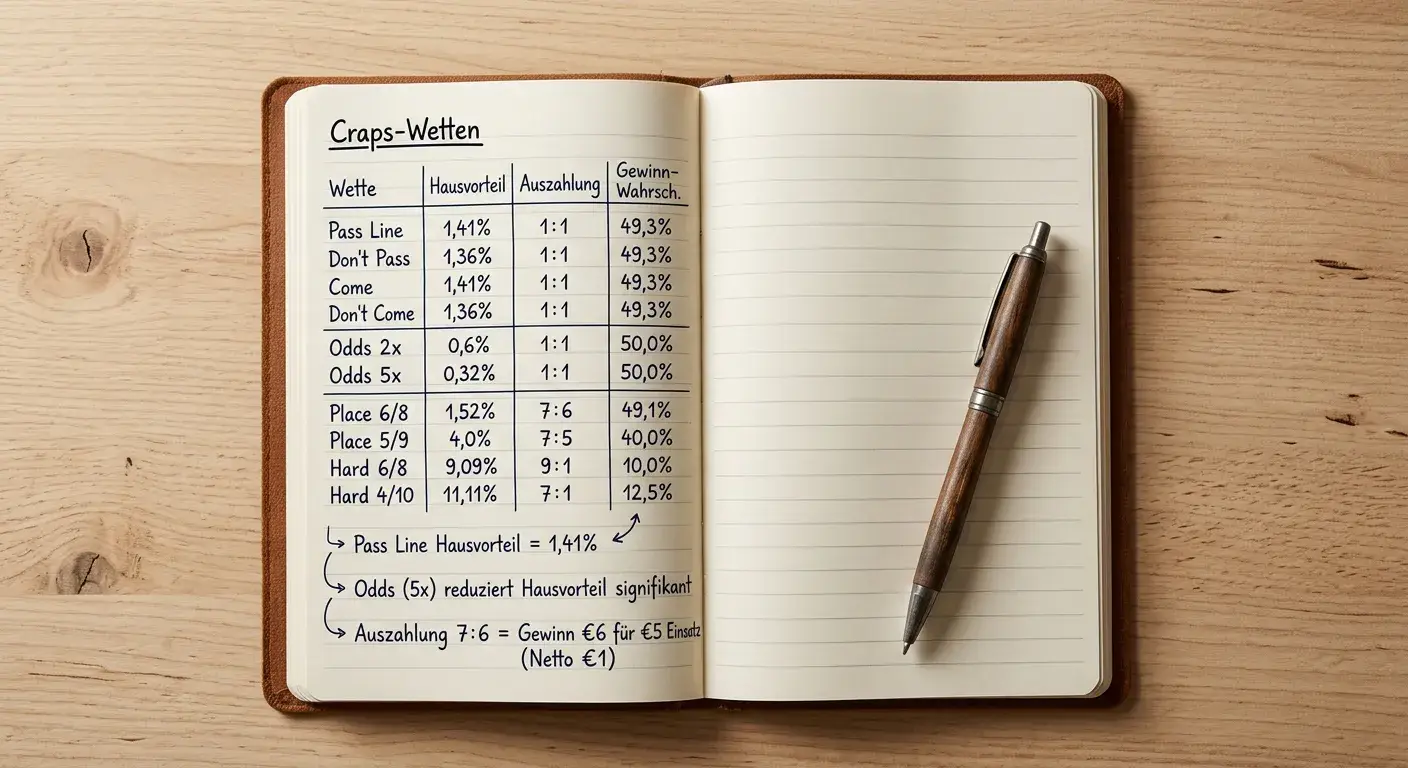 Craps-Wetten
Wette Hausvorteil Auszahlung Gewinn-Wahrsch.
Pass Line 1,41% 1:1 49,3%
Don't Pass 1,36% 1:1 49,3%
Come 1,41% 1:1 49,3%
Don't Come 1,36% 1:1 49,3%
Odds 2x 0,6% 1:1 50,0%
Odds 5x 0,32% 1:1 50,0%
Place 6/8 1,52% 7:6 49,1%
Place 5/9 4,0% 7:5 40,0%
Hard 6/8 9,09% 9:1 10,0%
Hard 4/10 11,11% 7:1 12,5%
Pass Line Hausvorteil = 1,41%
Odds (5x) reduziert Hausvorteil signifikant
Auszahlung 7:6 = Gewinn €6 für €5 Einsatz
(Netto €1)